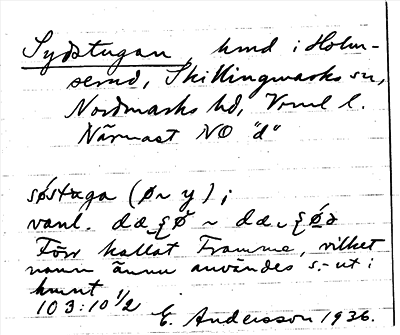 Sydstugan, hmd i Holm-
sernd, Skillingmarks sn,
Nordmarks hd, Vrml l.
Närmast NO "d"
søstæga (ø ~ y);
vanl. dæ ~ dæ
Förr kallat Framme, vilket
namn ännu användes s.-ut i
hmnt
103:10 1/2
E. Andersson 1936.